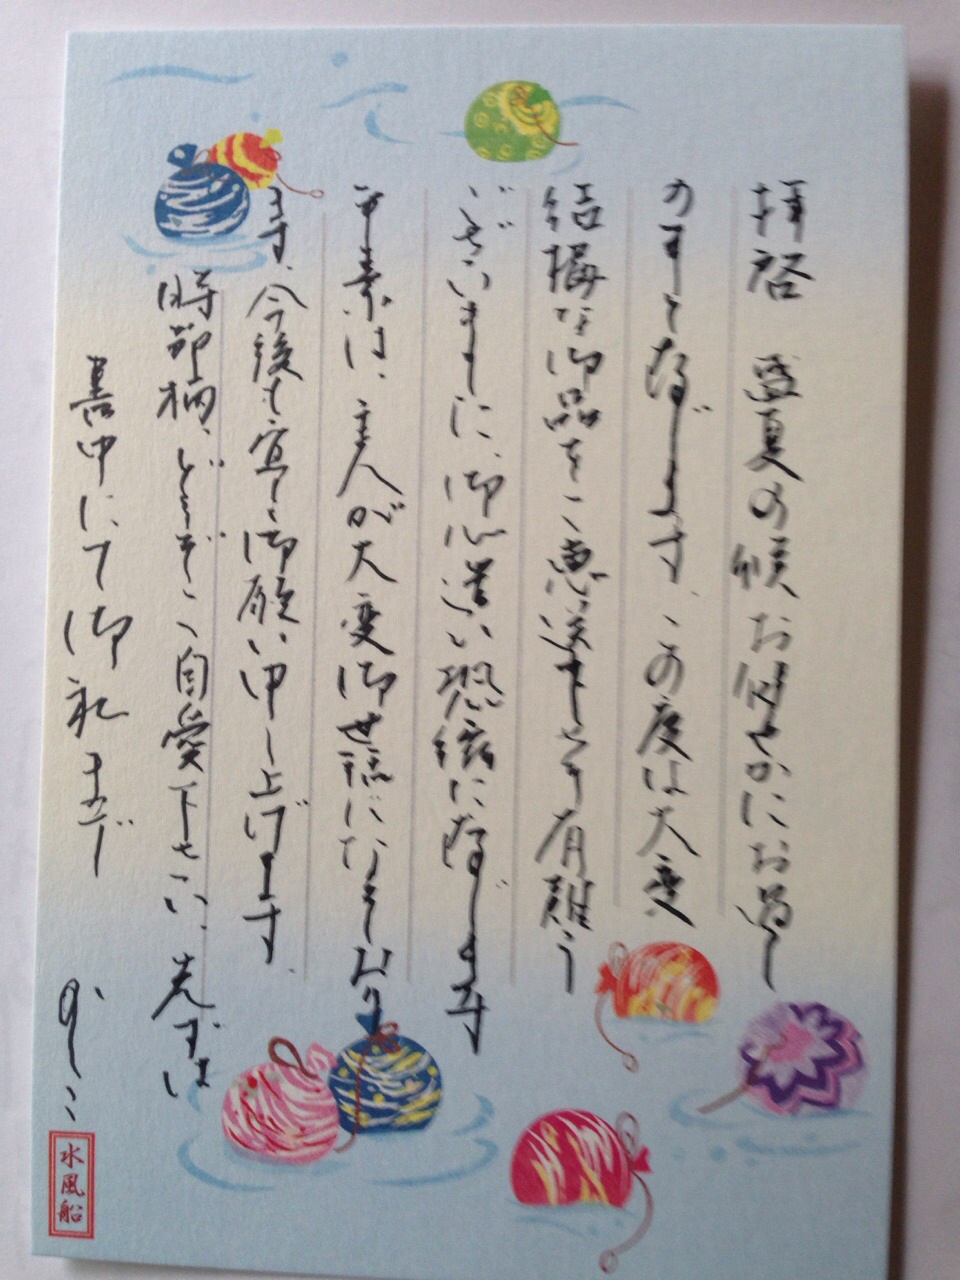 拝啓 盛夏の候 お健やかにお過し
のことと存じます、この度は大変
結構な御品をご恵送下さり有難う
ございました、御心遣い恐縮に存じます
平素は、主人が大変御世話になっており
ます、今後も宜しく御願い申し上げます、
時節柄、どうぞご自愛下さい、先ずは
書中にて御礼まで かしこ
水風船